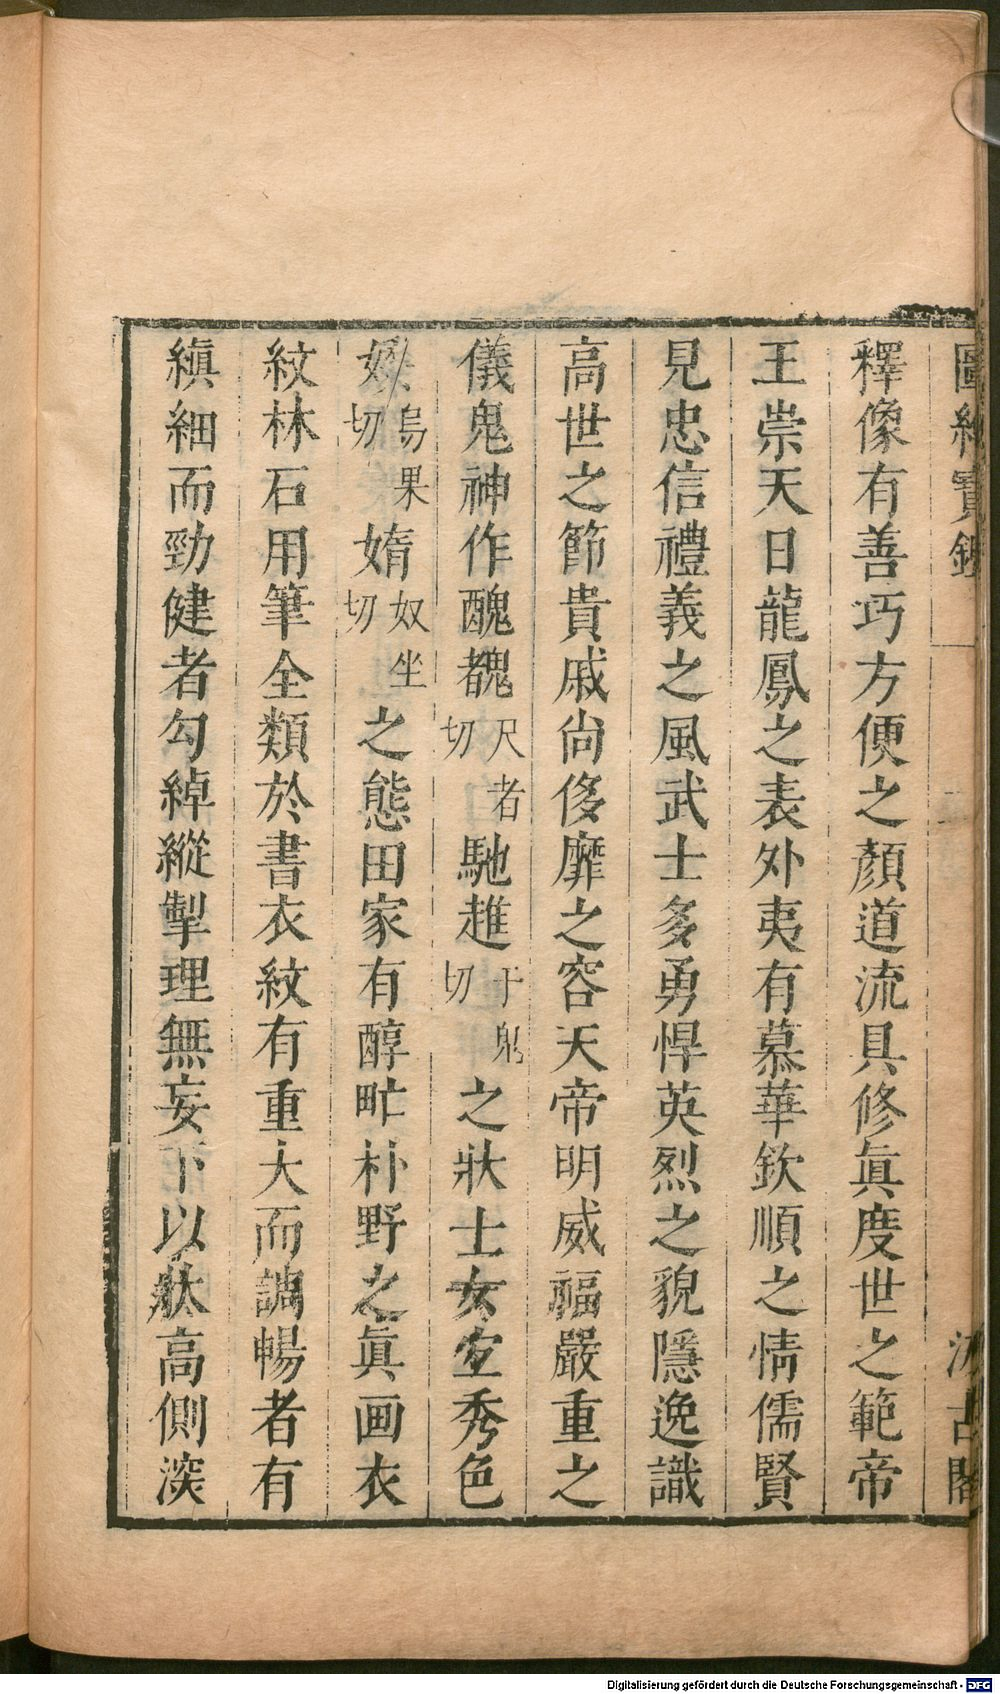 圖繪寶鑑 二 汲古閣
釋像有善巧方便之顏道流具修眞度世之範帝
王崇天日龍鳳之表外夷有慕華欽順之情儒賢
見忠信禮義之風武士多勇悍英烈之貌隱逸識
高世之節貴戚尙侈靡之容天帝明威福嚴重之
儀鬼神作醜䰩尺者切馳趡于鬼切之狀士女宜秀色
婐烏果切媠奴坐切之態田家有醇甿朴野之眞画衣
紋林石用筆全類於書衣紋有重大而調暢者有
縝細而勁健者勾綽縱掣理無妄下以狀高側深
Digitalisierung gefördert durch die Deutsche Forschungsgemeinschaft - DFG